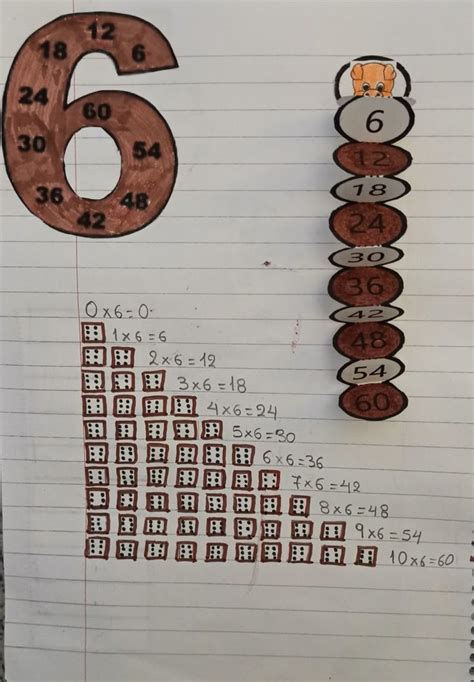 12
18
6
24
60
30
54
36
48
42
6
12
18
24
30
36
42
48
54
60
0x6=0
1x6=6
2x6=12
3x6=18
4x6=24
5x6=30
6x6=36
7x6=42
8x6=48
9x6=54
10x6=60